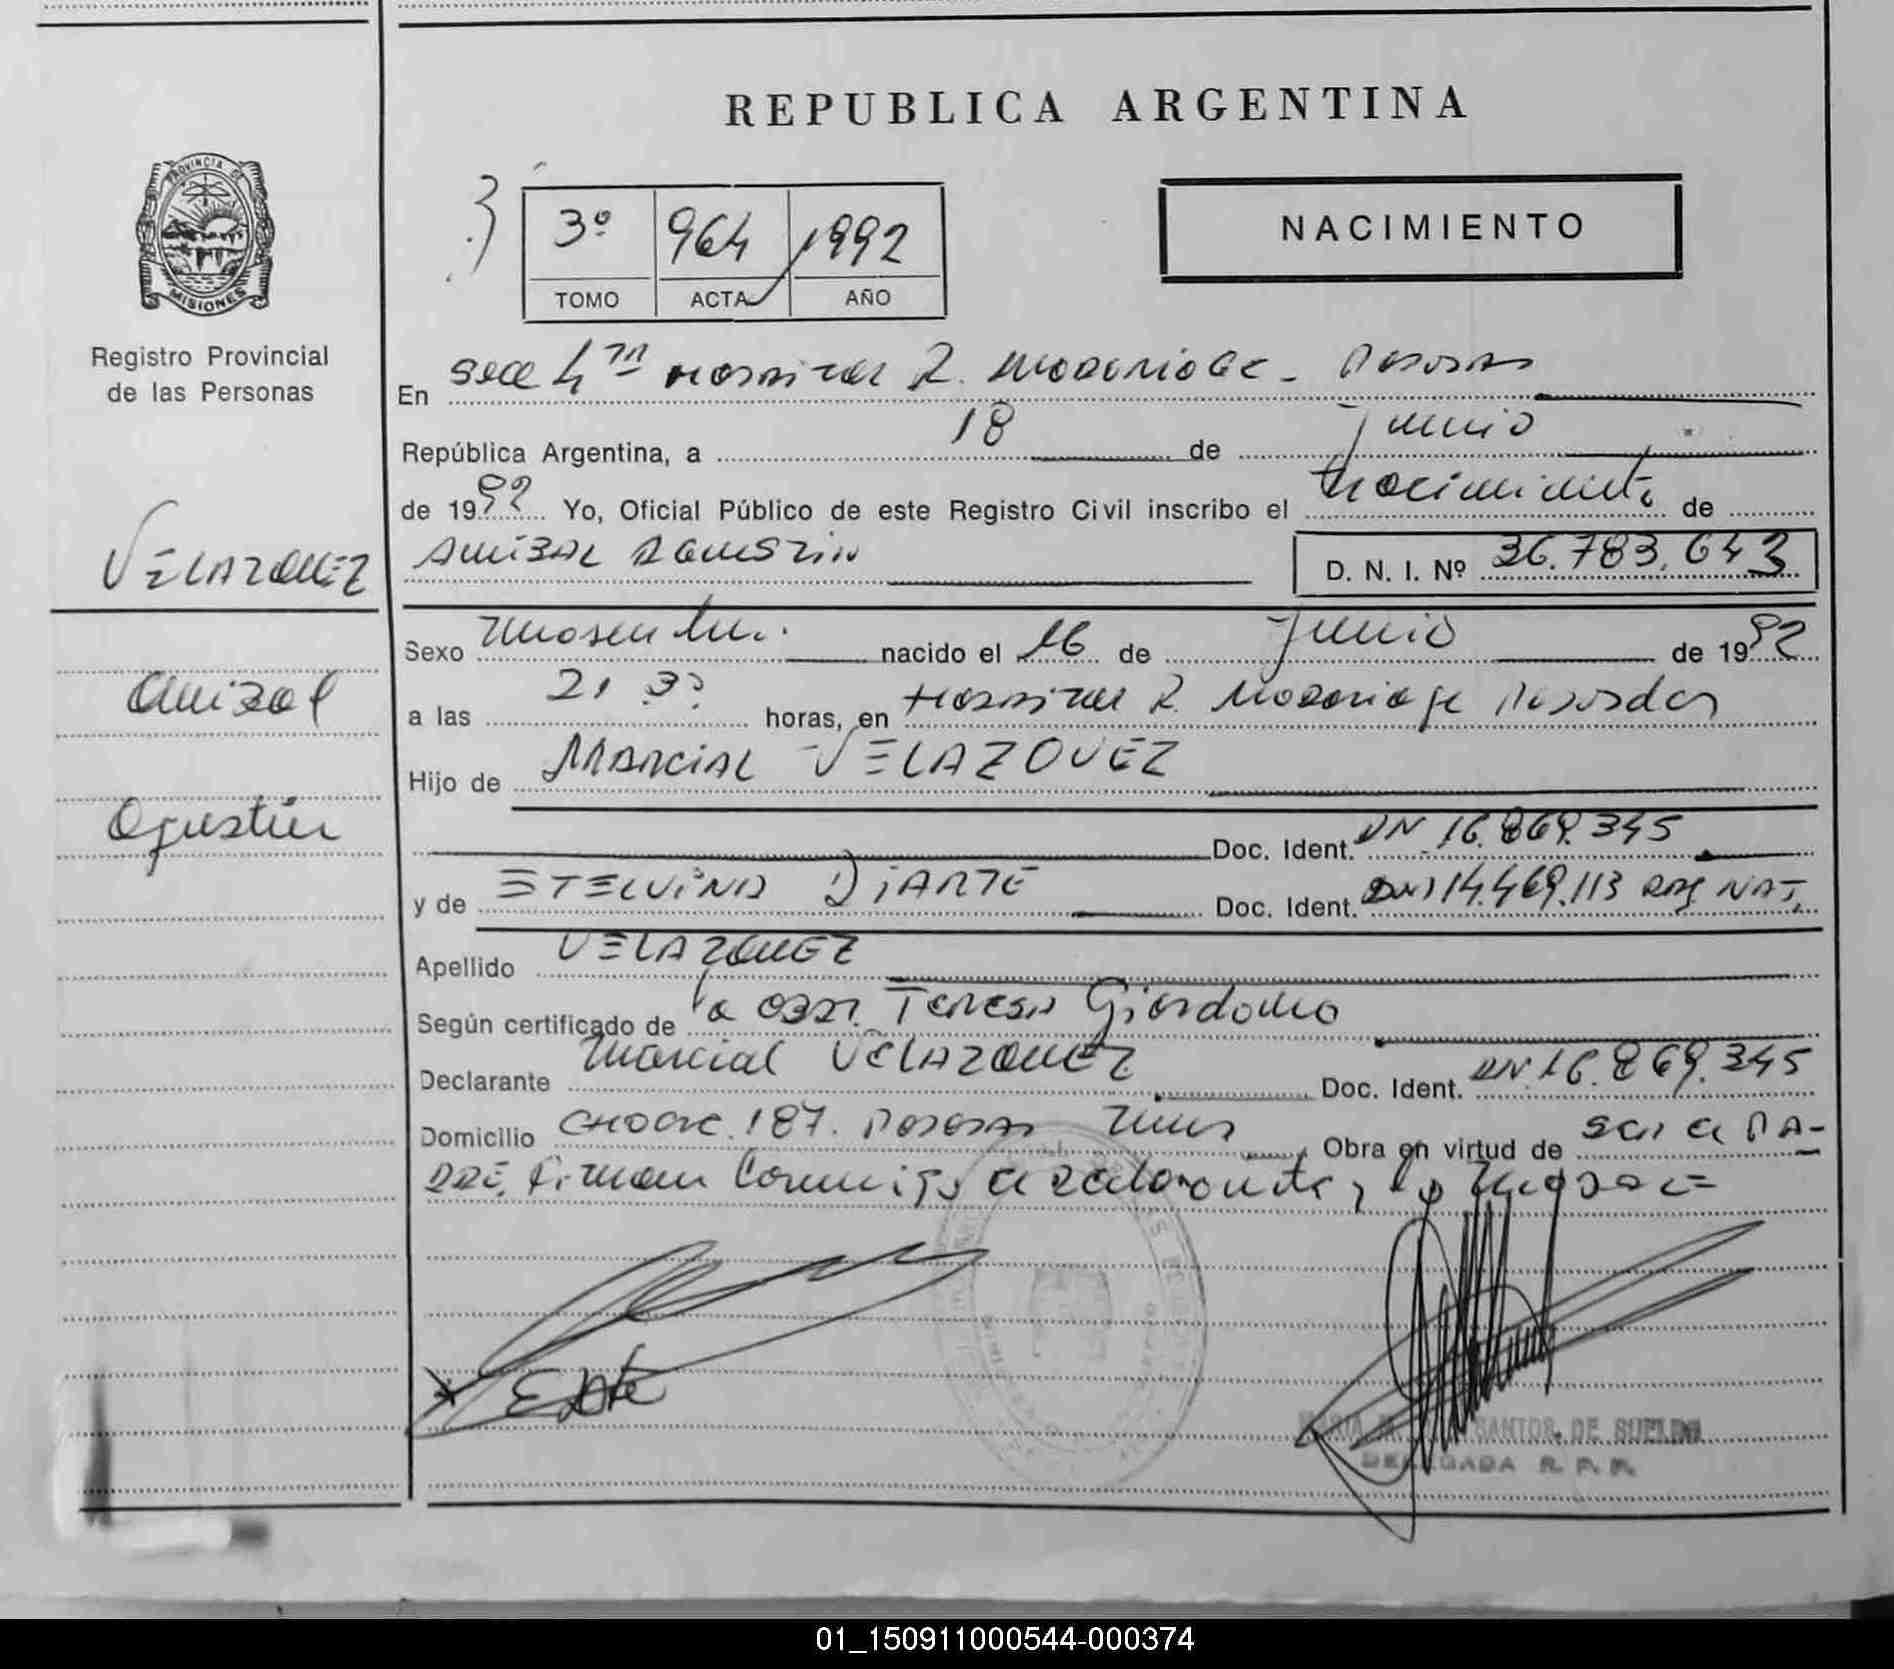 REPUBLICA ARGENTINA
PROVINCIA DE
MISIONES
Registro Provincial
de las Personas
3º 964 1992
TOMO ACTA AÑO
NACIMIENTO
En Secc 4ta Hospital R. Madariaga - Posadas
República Argentina, a 18 de Junio
de 1992 Yo, Oficial Público de este Registro Civil inscribo el Nacimiento de
VELAZQUEZ
Anibal Agustin D. N. I. Nº 36.783.643
Sexo Masculino nacido el 16 de Junio de 1992
Anibal
a las 21 30 horas, en Hospital R. Madariaga Posadas
Hijo de MARCIAL VELAZQUEZ
Agustin
Doc. Ident. DNI 16.869.345
y de ESTELVINA DIARTE Doc. Ident. DNI 14.469.113 ARG NAT.
Apellido VELAZQUEZ
Según certificado de la Obst. Teresa Giordano
Declarante Marcial VELAZQUEZ Doc. Ident. DNI 16.869.345
Domicilio 187. Posadas Mnes Obra en virtud de ser el PA-
DRE, Firman Conmigo el declarante y la Madre =
SANTOS DE SUELDO
DELEGADA R. P. P.
01_150911000544-000374